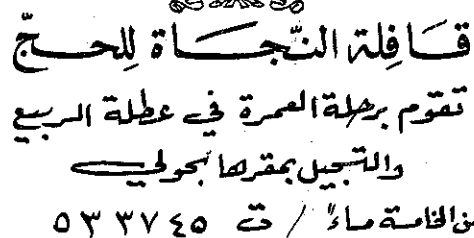 قافلة النّجاة للحجّ
تقوم برحلة العمرة في عطلة الربيع
والتسجيل بمقرها بحولي
من الخامسة مساءً / ت ٥٣٣٧٤٥